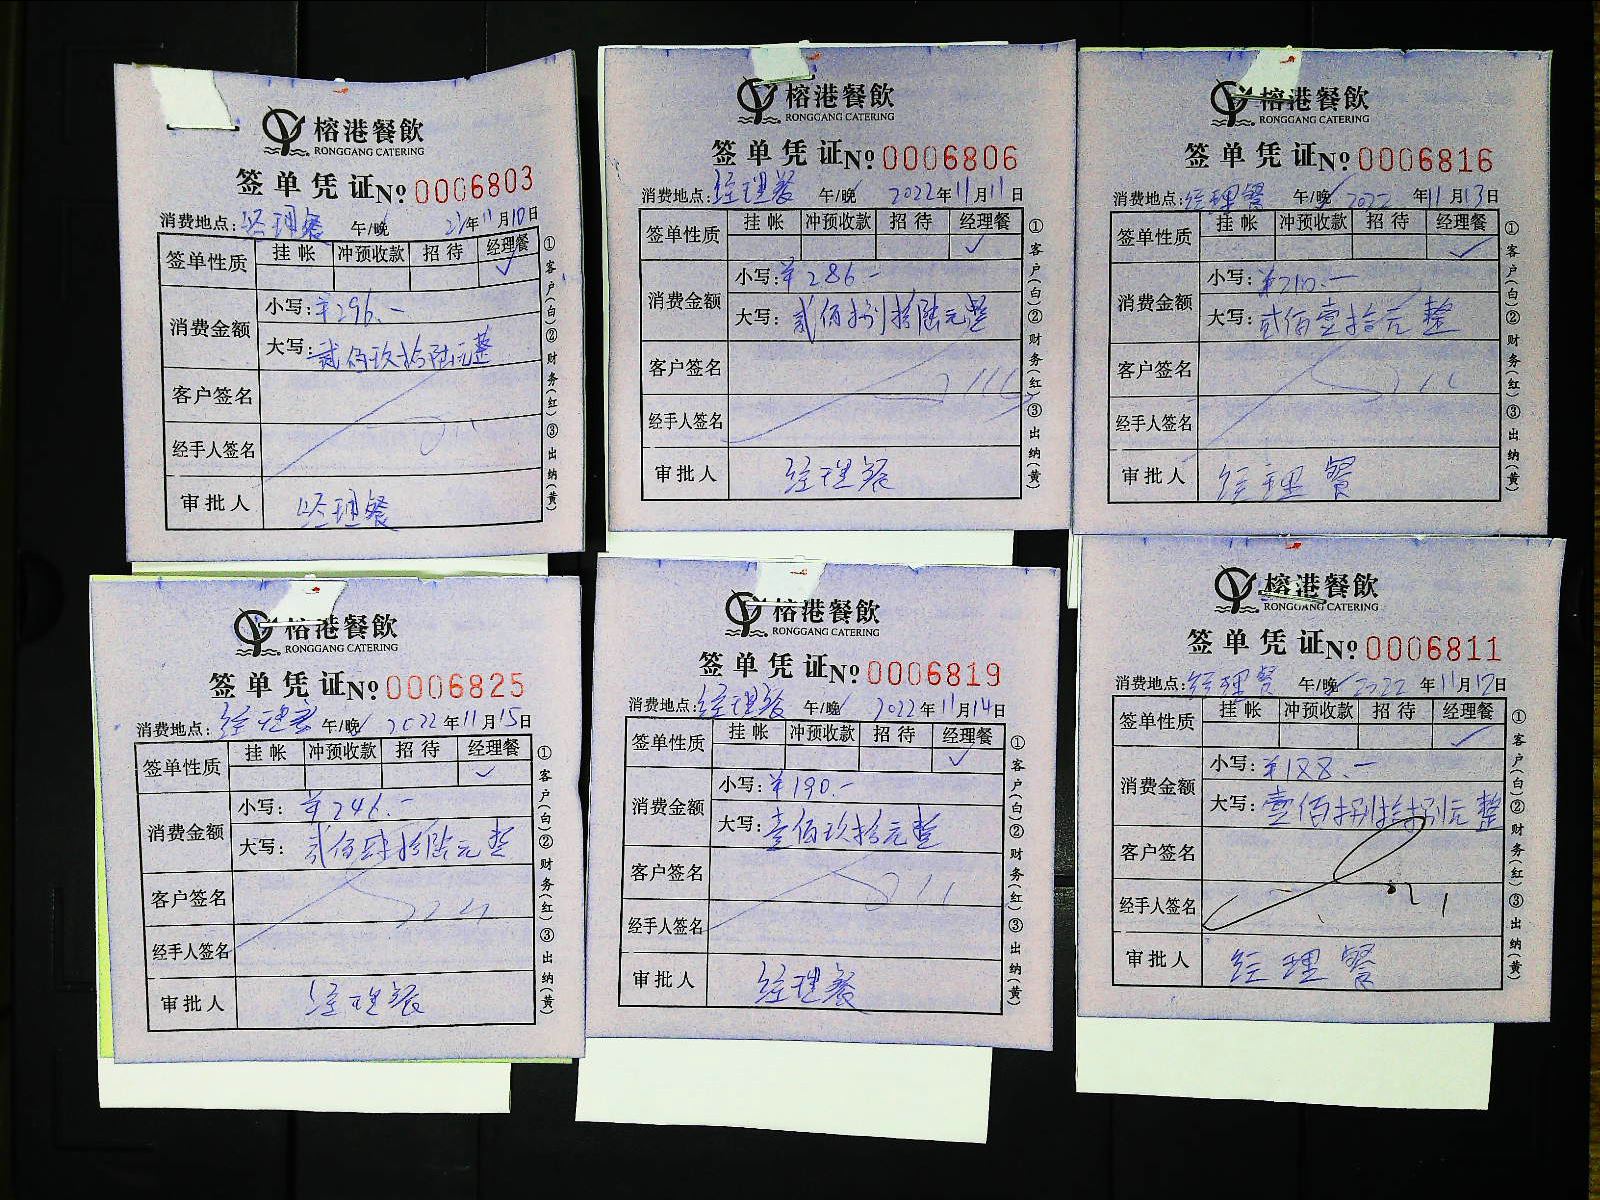 榕港餐飲
RONGGANG CATERING
签单凭证№ 0006803
消费地点: 经理餐 午/晚 年11月10日
签单性质 挂帐 冲预收款 招待 经理餐 ✓
消费金额 小写: ¥296.-
大写: 贰佰玖拾陆元整
客户签名
经手人签名
审批人 经理餐
①客户(白)②财务(红)③出纳(黄)
榕港餐飲
RONGGANG CATERING
签单凭证№ 0006806
消费地点: 经理餐 午/晚 2022年11月11日
签单性质 挂帐 冲预收款 招待 经理餐 ✓
消费金额 小写: ¥286.-
大写: 贰佰捌拾陆元整
客户签名
经手人签名
审批人 经理餐
①客户(白)②财务(红)③出纳(黄)
榕港餐飲
RONGGANG CATERING
签单凭证№ 0006816
消费地点: 经理餐 午/晚 2022年11月13日
签单性质 挂帐 冲预收款 招待 经理餐 ✓
消费金额 小写: ¥210.-
大写: 贰佰壹拾元整
客户签名
经手人签名
审批人 经理餐
①客户(白)②财务(红)③出纳(黄)
榕港餐飲
RONGGANG CATERING
签单凭证№ 0006825
消费地点: 经理餐 午/晚 2022年11月15日
签单性质 挂帐 冲预收款 招待 经理餐 ✓
消费金额 小写: ¥246.-
大写: 贰佰肆拾陆元整
客户签名
经手人签名
审批人 经理餐
①客户(白)②财务(红)③出纳(黄)
榕港餐飲
RONGGANG CATERING
签单凭证№ 0006819
消费地点: 经理餐 午/晚 2022年11月14日
签单性质 挂帐 冲预收款 招待 经理餐 ✓
消费金额 小写: ¥190.-
大写: 壹佰玖拾元整
客户签名
经手人签名
审批人 经理餐
①客户(白)②财务(红)③出纳(黄)
榕港餐飲
RONGGANG CATERING
签单凭证№ 0006811
消费地点: 经理餐 午/晚 2022年11月12日
签单性质 挂帐 冲预收款 招待 经理餐 ✓
消费金额 小写: ¥188.-
大写: 壹佰捌拾捌元整
客户签名
经手人签名
审批人 经理餐
①客户(白)②财务(红)③出纳(黄)